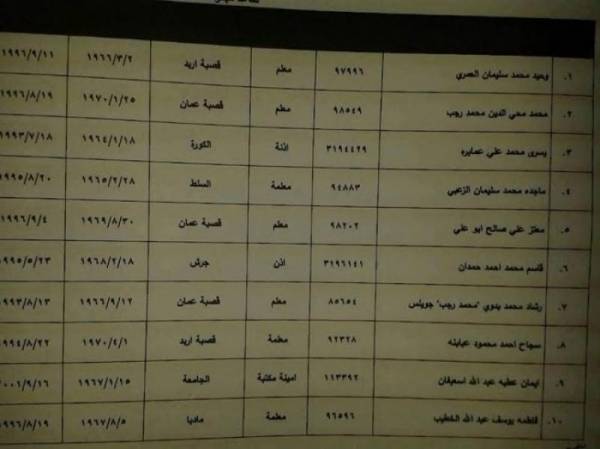 .١ وحيد محمد سليمان العمري ٩٧٩٩٦ معلم قصبة اربد ١٩٦٦/٣/٢ ١٩٩٦/٩/١١
.٢ محمد محي الدين محمد رجب ٩٨٥٤٩ معلم قصبة عمان ١٩٧٠/١/٢٥ ١٩٩٦/٨/١٩
.٣ يسرى محمد علي عمايره ٣١٩٤٤٢٩ اذنة الكورة ١٩٦٤/١/١٨ ١٩٩٣/٧/١٨
.٤ ماجده محمد سليمان الزعبي ٩٤٨٨٣ معلمة السلط ١٩٦٥/٢/٢٨ ١٩٩٥/٨/٢٠
.٥ معتز علي صالح ابو علي ٩٨٢٠٢ معلم قصبة عمان ١٩٦٩/٨/٣٠ ١٩٩٦/٩/٤
.٦ قاسم محمد احمد حمدان ٣١٩٦١٤١ اذن جرش ١٩٦٨/٢/١٨ ١٩٩٥/٥/٢٣
.٧ رشاد محمد بدوي "محمد رجب" جويلس ٨٥٦٥٤ معلم قصبة عمان ١٩٦٦/٩/١٢ ١٩٩٣/٨/١٣
.٨ سجاح احمد محمود عبابنه ٩٢٣٢٨ معلمة قصبة اربد ١٩٧٠/٤/١ ١٩٩٤/٨/٢٢
.٩ ايمان عطيه عبد الله اسعيفان ١١٣٣٩٢ امينة مكتبة الجامعة ١٩٦٧/١/١٥ ٢٠٠١/٩/١٦
.١٠ فاطمه يوسف عبد الله الخطيب ٩٦٥٩٦ معلمة مادبا ١٩٦٧/٨/٥ ١٩٩٦/٨/١٩